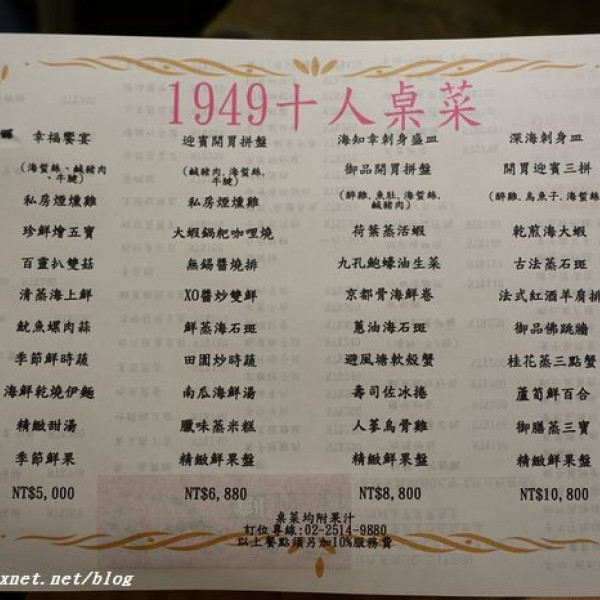 1949十人桌菜
幸福饗宴
(海蜇絲、鹹豬肉、牛腱)
私房煙燻雞
珍鮮燴五寶
百靈扒雙菇
清蒸海上鮮
魷魚螺肉蒜
季節鮮時蔬
海鮮乾燒伊麵
精緻甜湯
季節鮮果
NT$5,000
迎賓開胃拼盤
(鹹豬肉,海蜇絲,牛腱)
私房煙燻雞
大蝦鍋粑咖哩燒
無錫醬燒排
XO醬炒雙鮮
鮮蒸海石斑
田園炒時蔬
南瓜海鮮湯
臘味蒸米糕
精緻鮮果盤
NT$6,880
海知幸刺身盛皿
御品開胃拼盤
(醉雞,魚肚,海蜇絲,鹹豬肉)
荷葉蒸活蝦
九孔鮑蠔油生菜
京都骨海鮮卷
蔥油海石斑
避風塘軟殼蟹
壽司佐冰捲
人蔘烏骨雞
精緻鮮果盤
NT$8,800
深海刺身皿
開胃迎賓三拼
(醉雞,烏魚子,海蜇絲)
乾煎海大蝦
古法蒸石斑
法式紅酒羊肩排
御品佛跳牆
桂花蒸三點蟹
蘆筍鮮百合
御膳蒸三寶
精緻鮮果盤
NT$10,800
桌菜均附果汁
訂位專線:02-2514-9880
以上餐點須另加10%服務費
xnet.net/blog